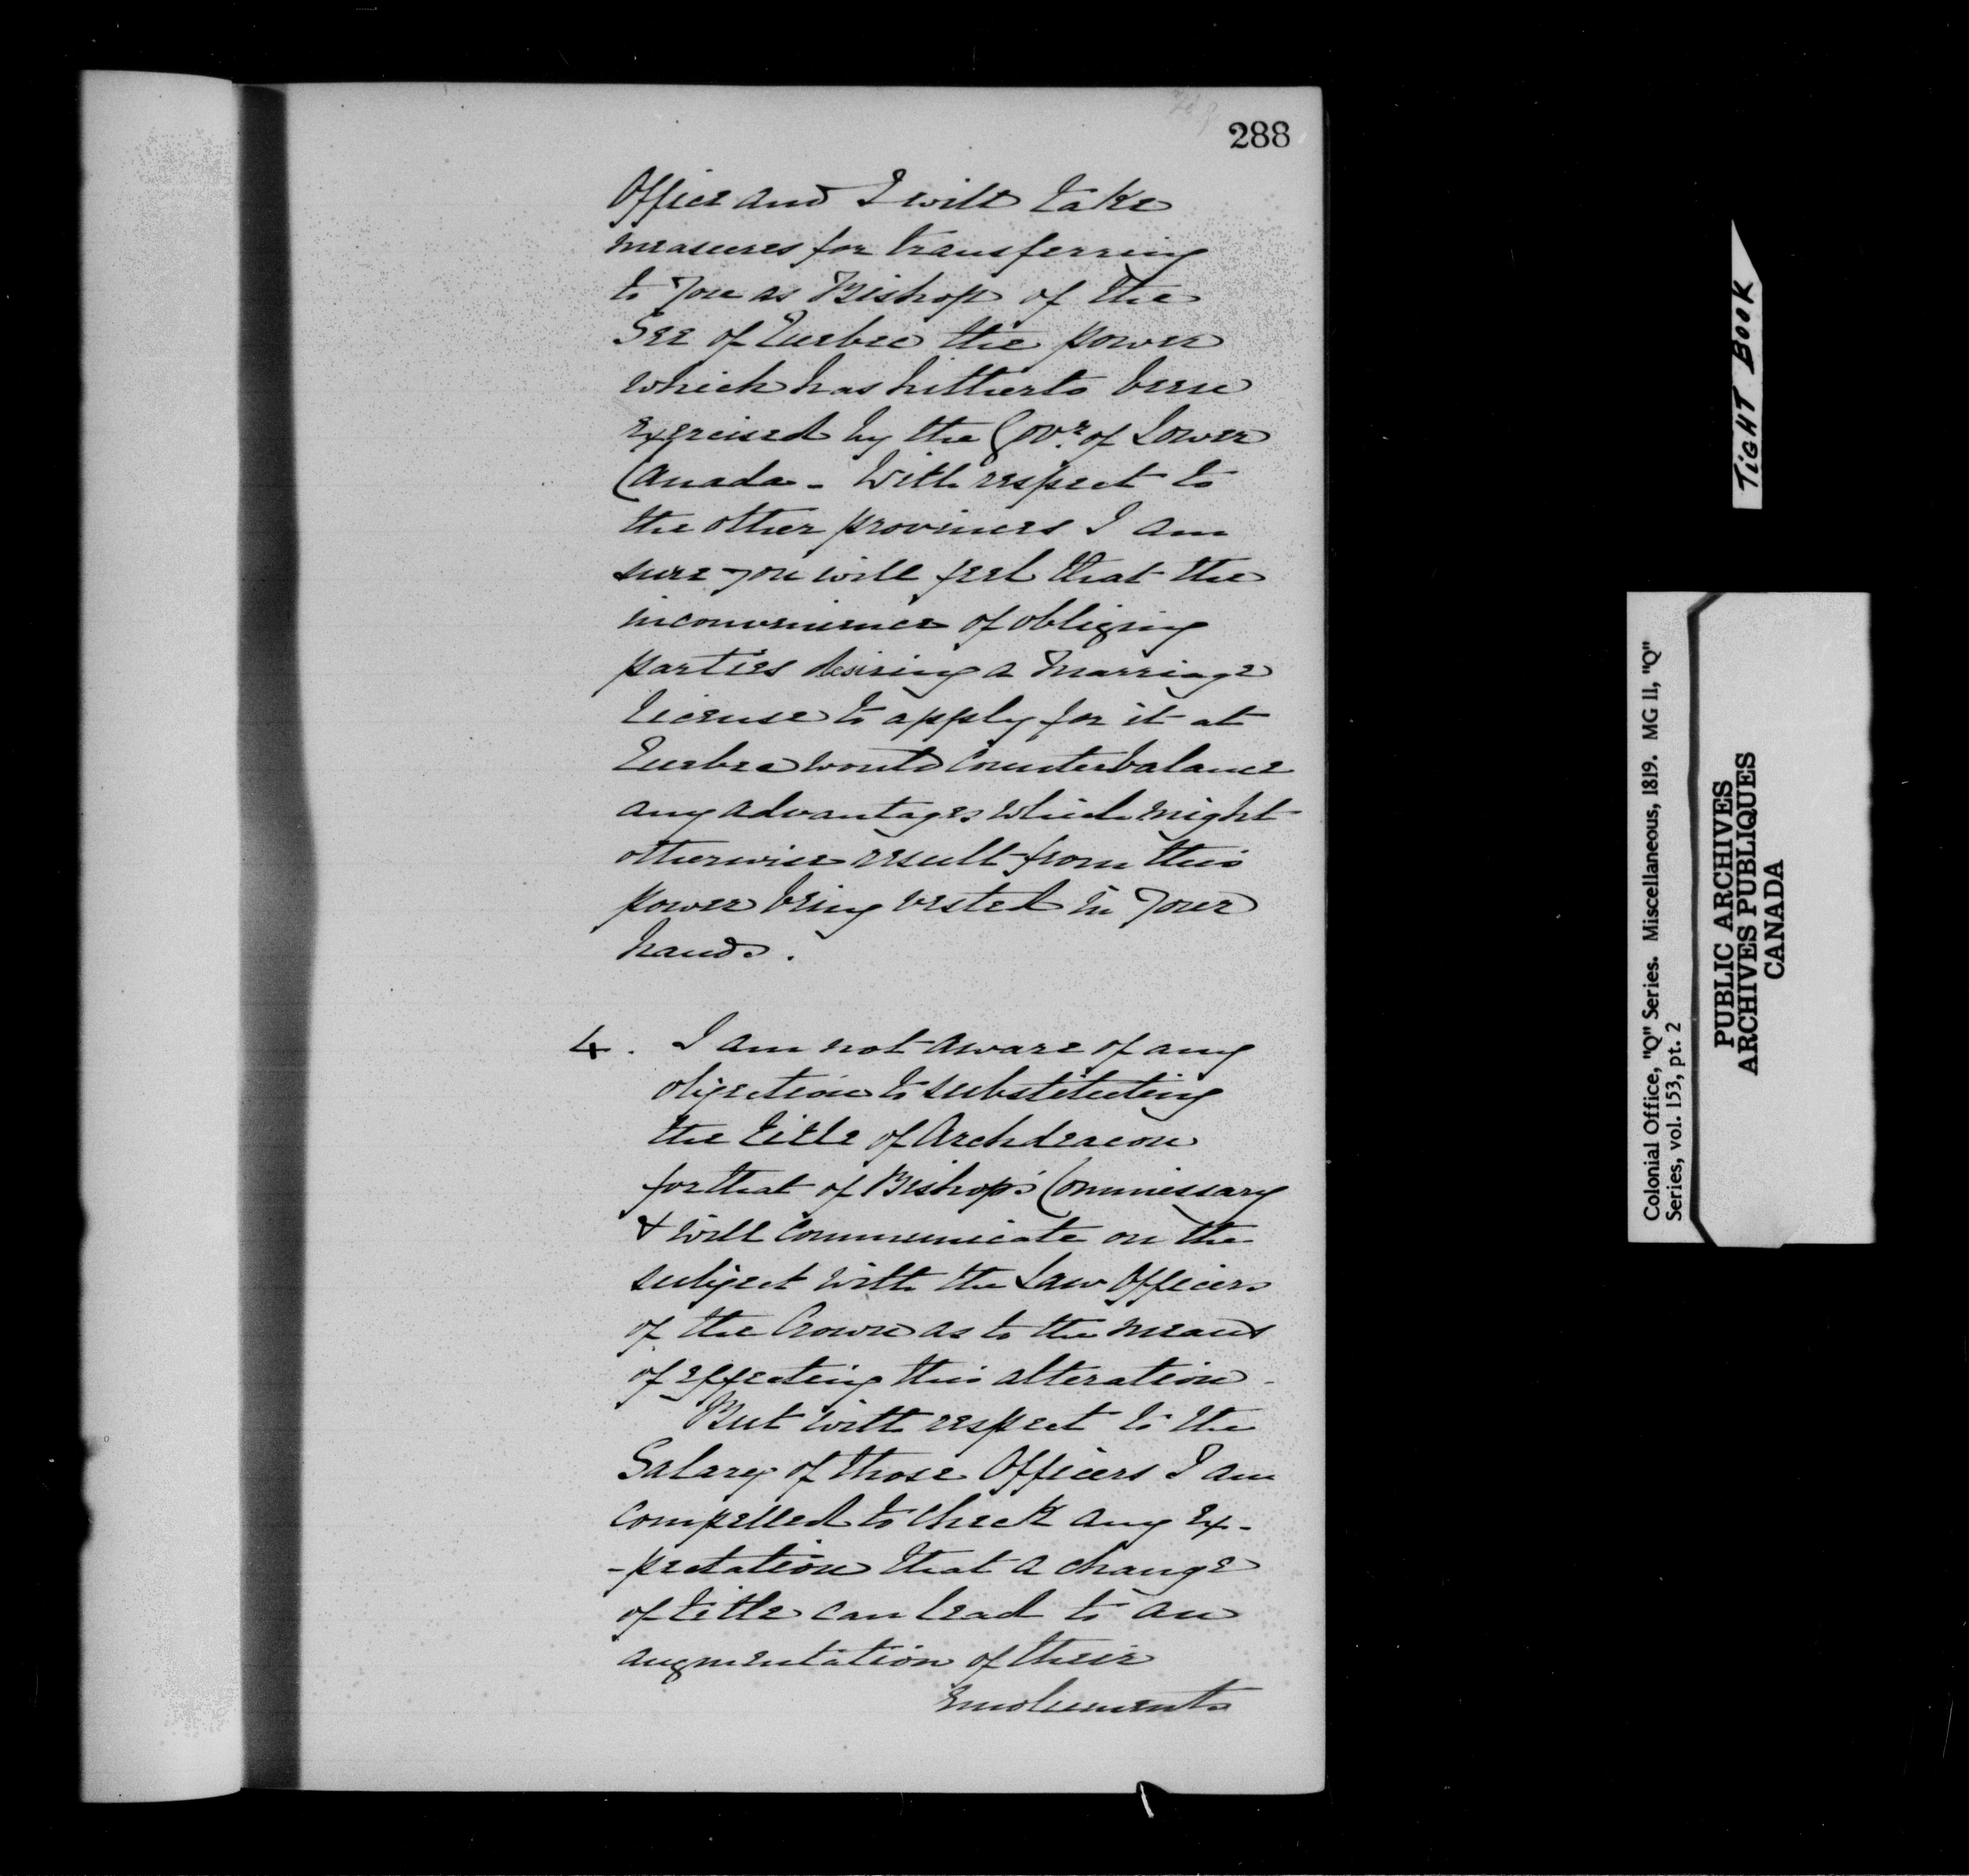 288
Office and I will take
measures for transferring
to you as Bishop of the
See of Quebec the power
which has hitherto been
exercised by the Govr. of Lower
Canada - With respect to
the other provinces I am
sure you will feel that the
inconvenience of obliging
parties desiring a Marriage
License to apply for it at
Quebec would counterbalance
any advantages which might
otherwise result from this
power being vested in your
hands.
4. I am not aware of any
objection to substituting
the title of Archdeacon
for that of Bishop's Commissary
& will communicate on the
subject with the Law Officers
of the Crown as to the means
of effecting this alteration -
But with respect to the
Salary of those Officers I am
compelled to check any ex-
-pectation that a change
of title can lead to an
augmentation of their
Emoluments
TIGHT BOOK
Colonial Office, "Q" Series. Miscellaneous, 1819. MG 11, "Q"
Series, vol. 153, pt. 2
PUBLIC ARCHIVES
ARCHIVES PUBLIQUES
CANADA